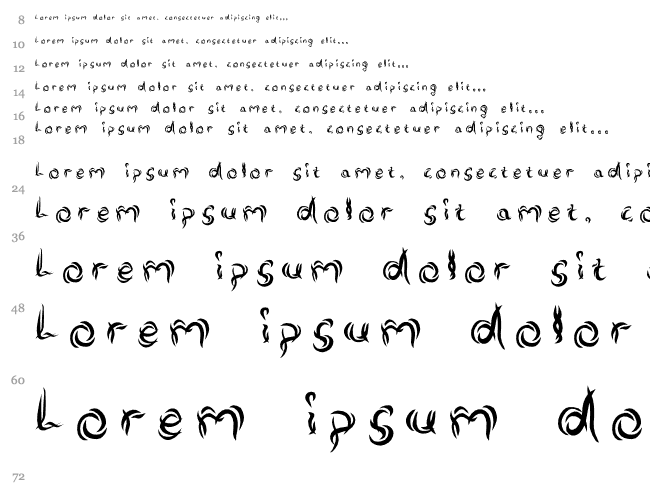 8 Lorem ipsum dolor sit amet, consectetuer adipiscing elit...
10 Lorem ipsum dolor sit amet, consectetuer adipiscing elit...
12 Lorem ipsum dolor sit amet, consectetuer adipiscing elit...
14 Lorem ipsum dolor sit amet, consectetuer adipiscing elit...
16 Lorem ipsum dolor sit amet, consectetuer adipiscing elit...
18 Lorem ipsum dolor sit amet, consectetuer adipiscing elit...
24 Lorem ipsum dolor sit amet, consectetuer adipi
36 Lorem ipsum dolor sit amet, co
48 Lorem ipsum dolor sit
60 Lorem ipsum dolor
72 Lorem ipsum do